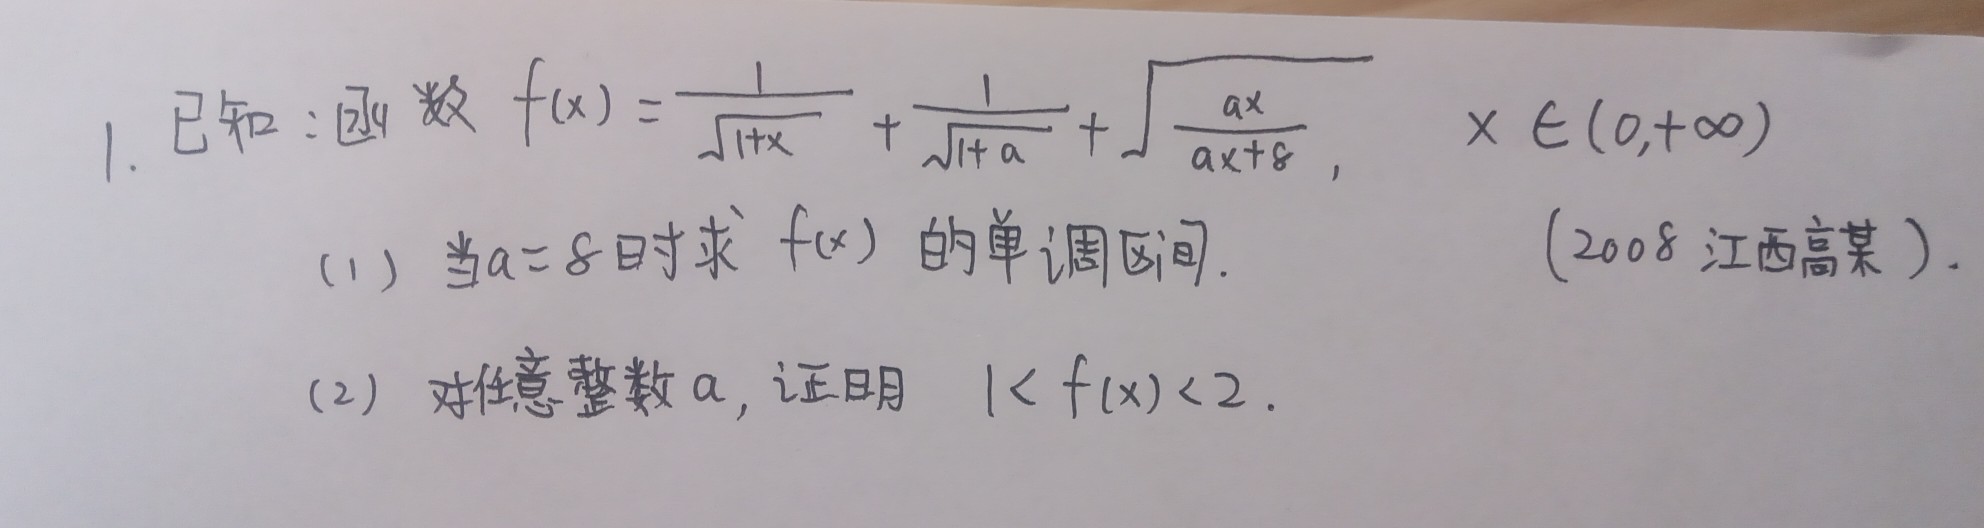 1. 已知:函数 f(x) = \frac{1}{\sqrt{1+x}} + \frac{1}{\sqrt{1+a}} + \sqrt{\frac{ax}{ax+8}}, x ∈(0,+∞)
(1) 当a=8时求 f(x) 的单调区间. (2008 江西高某).
(2) 对任意整数a, 证明 1< f(x) <2.